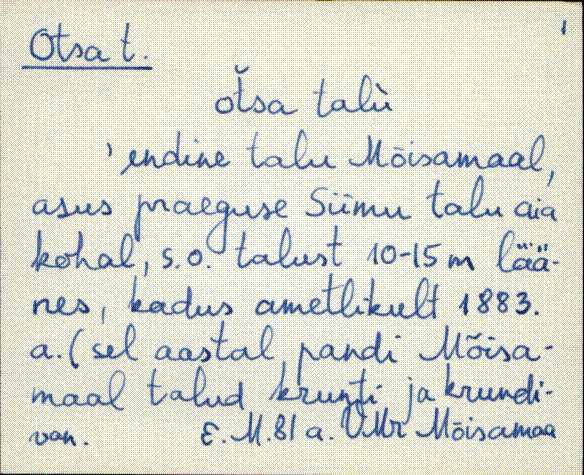 1
Otsa t.
otsa talù
'endine talu Mõisamaal,
asus praeguse Siimu talu aia
kohal, s.o. talust 10-15 m lää-
nes, kadus ametlikult 1883.
a. (sel aastal pandi Mõisa-
maal talud krunti ja krundi-
van. E. M. 81 a. VMr Mõisamaa